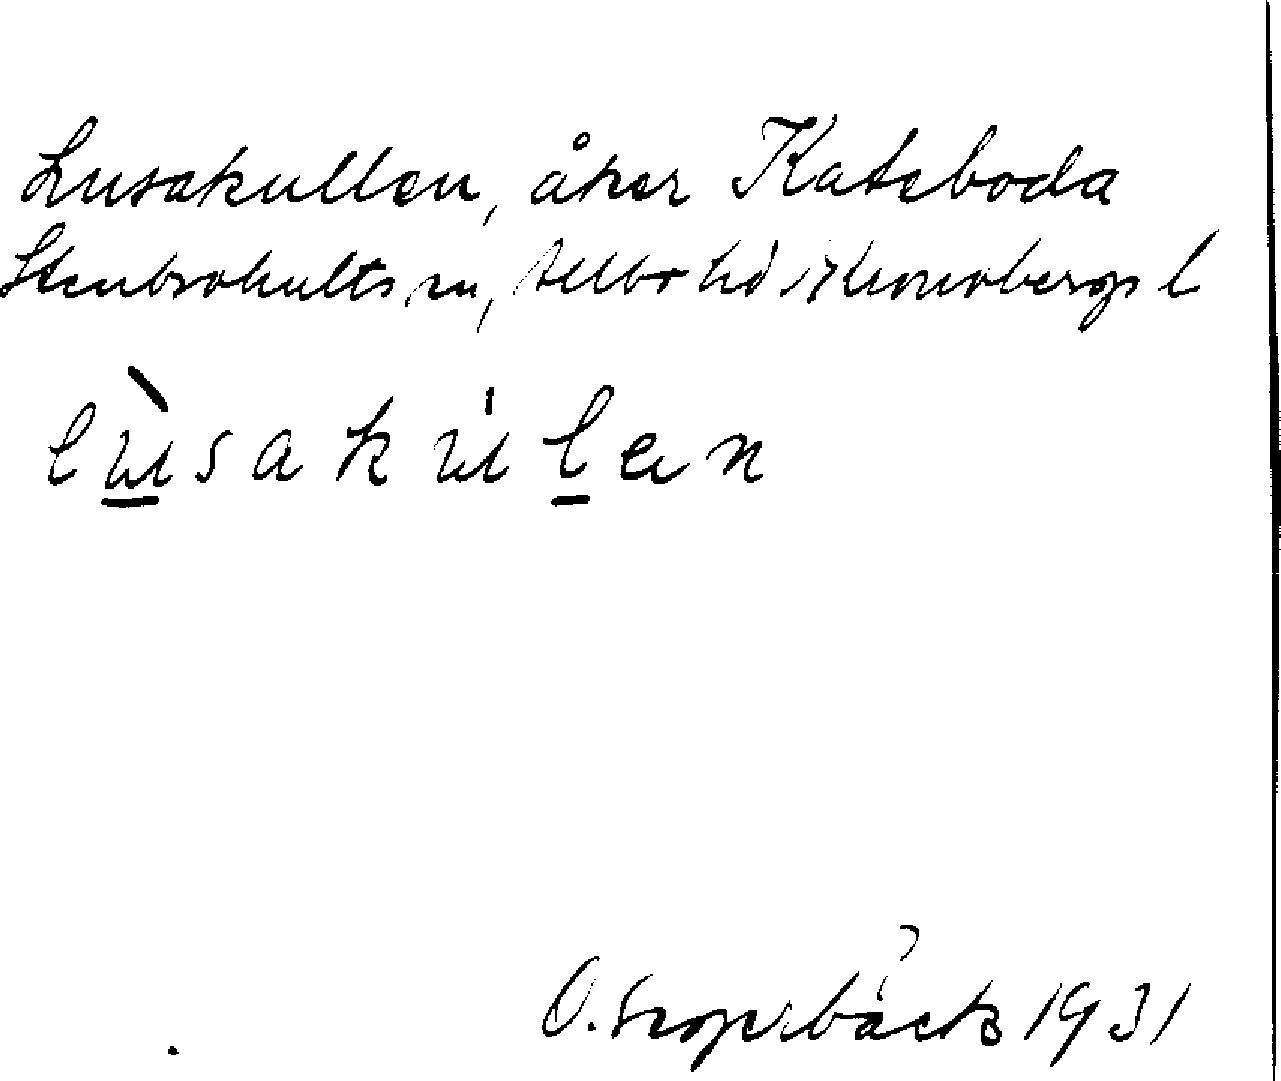 Lusakullen, åker Kateboda
Stenbrohults sn, Allbo hd Kronobergs l
lùsakúlen
O. 1931